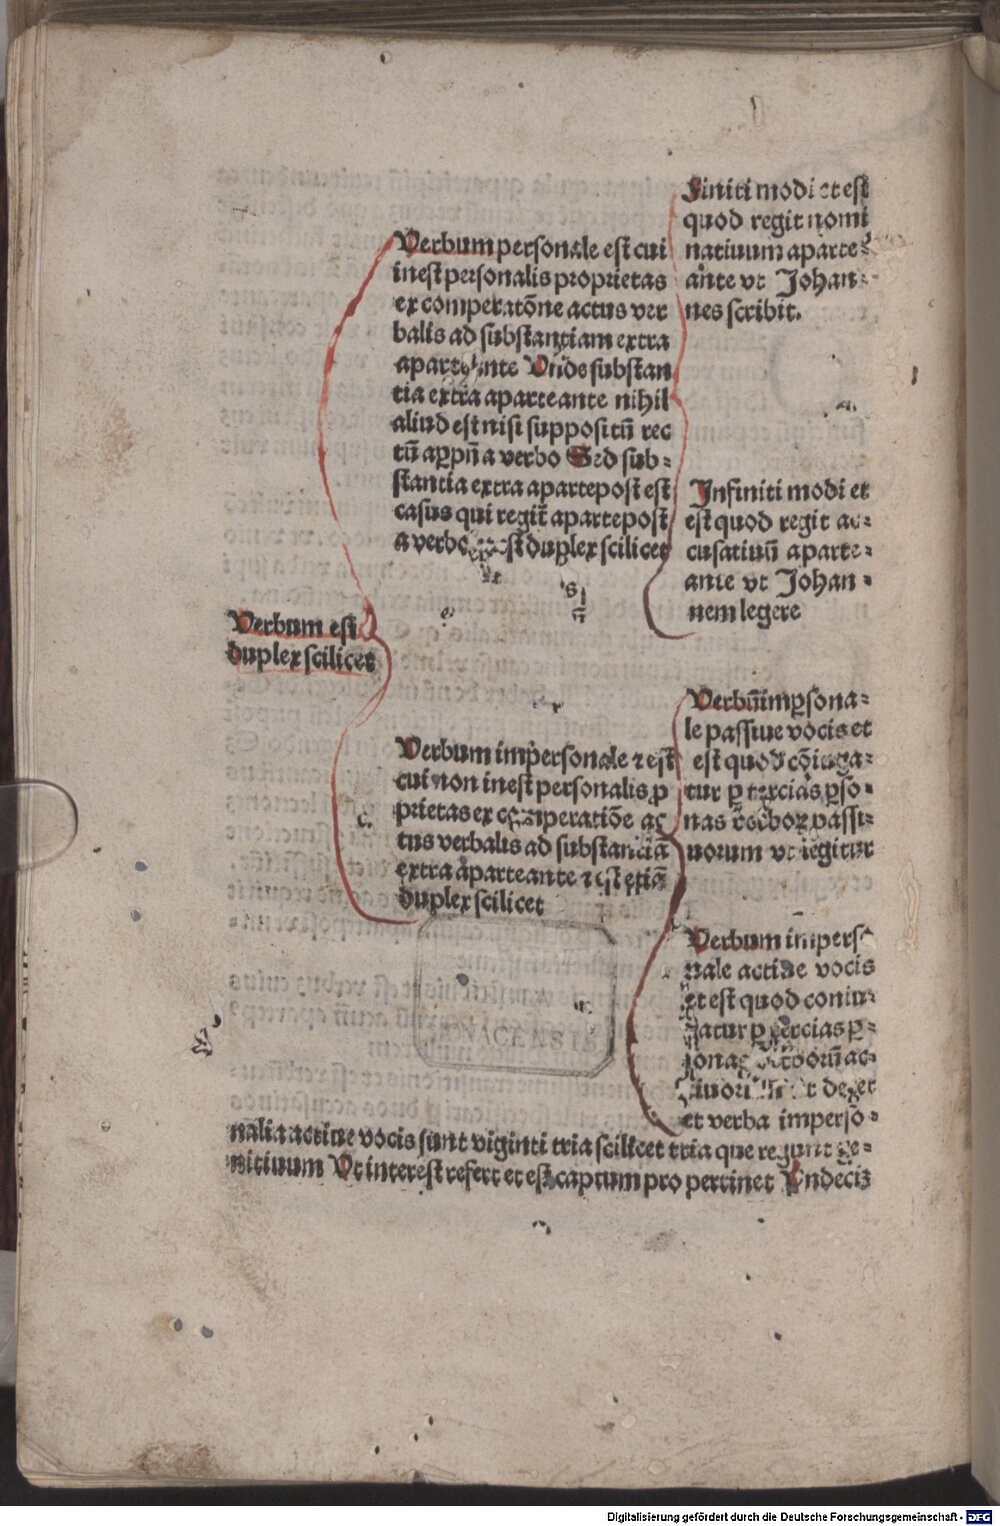 Verbum est
duplex scilicet
Verbum personale est cui
inest personalis proprietas
ex comperatōne actus ver
balis ad substantiam extra
aparteante Vnde substan
tia extra aparteante nihil
aliud est nisi suppositū rec
tū a verbo Sed sub⸗
stantia extra apartepost est
casus qui regit apartepost
a verbo est duplex scilicet
Finiti modi et est
quod regit nomi
natiuum aparte⸗
ante vt Johan⸗
nes scribit.
Infiniti modi et
est quod regit ac⸗
cusatiuū aparte⸗
ante vt Johan⸗
nem legere
Verbum impersonale ⁊ est
cui non inest personalis ꝓ
prietas ex comperatiōe ac
tus verbalis ad substanciā
extra aparteante ⁊ est etiā
duplex scilicet
Verbūimꝑsona⸗
le passiue vocis et
est quod cōiuga⸗
tur ꝑ tercias ꝑso⸗
nas verboꝝ passi⸗
uorum vt legitur
Verbum imperso
nale actiue vocis
et est quod coniu⸗
gatur ꝑ tercias ꝑ⸗
sonas ac⸗
decet
et verba imperso⸗
nalia actiue vocis sunt viginti tria scilicet tria que regunt ge⸗
nitiuum Vt interest refert et est captum pro pertinet Vndeciꝫ
NACENSIS
Digitalisierung gefördert durch die Deutsche Forschungsgemeinschaft - DFG